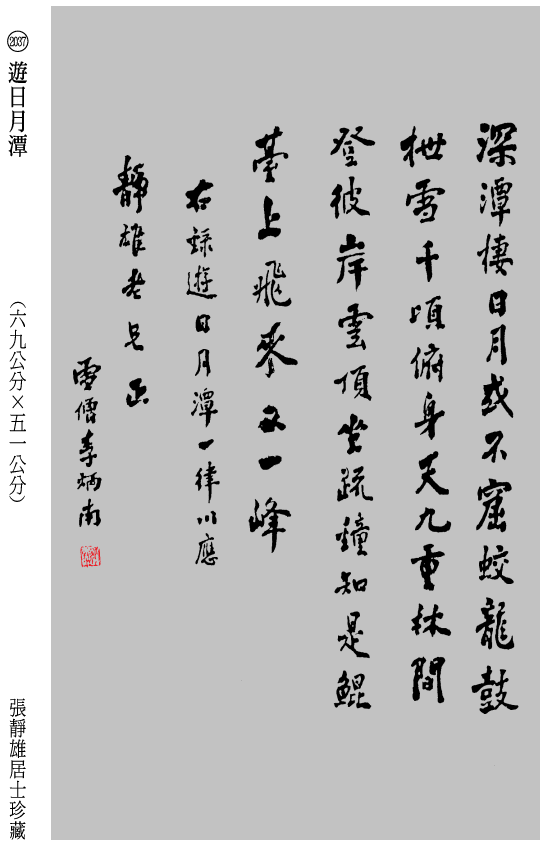 深潭棲日月或不窟蛟龍鼓
枻雪千頃俯身天九重林間
登彼岸雲頂坐疏鐘知是鯤
臺上飛來又一峰
右錄遊日月潭一律以應
靜雄老兄正
雪僧李炳南
2037 遊日月潭
（六九公分×五一公分）
張靜雄居士珍藏